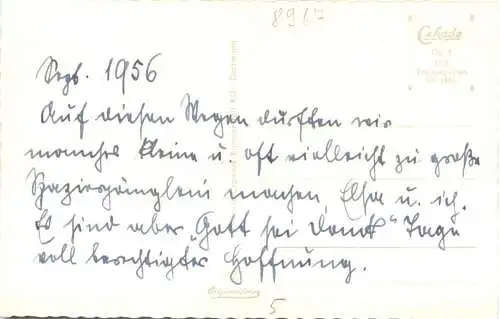 8967
Sept. 1956
Auf diesen Wegen durften wir
manches kleine u. oft vielleicht zu große
Spaziergänglein machen, Elsa u. ich.
Es sind aber „Gott sei Dank" Tage
voll berechtigter Hoffnung.
Cekade
5